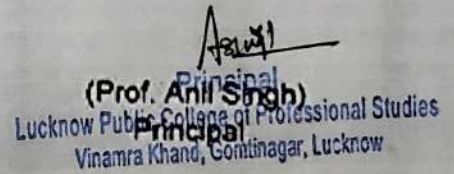 Principal
(Prof. Anil Singh)
Lucknow Public College of Professional Studies
Principal
Vinamra Khand, Gomtinagar, Lucknow